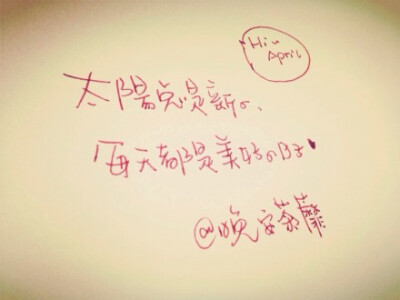 Hi~
April
太陽总是新的、
每天都是美好的日子
@晚安荼蘼